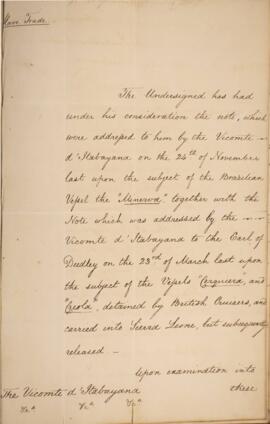 Slave Trade.
The Undersigned has had
under his consideration the note, which
were addressed to him by the Vicomte
d'Itabayana on the 24th of November
last upon the subject of the Brazilian
Vessel the "Minerva" together with the
Note which was addressed by the
Vicomte d'Itabayana to the Earl of
Dudley on the 23rd of March last upon
the subject of the Vessels "Cerqueira", and
"Creola", detained by British Cruizers, and
carried into Sierra Leone, but subsequently
released –
Upon examination into
these
The Vicomte d'Itabayana
&c.a &c.a &c.a